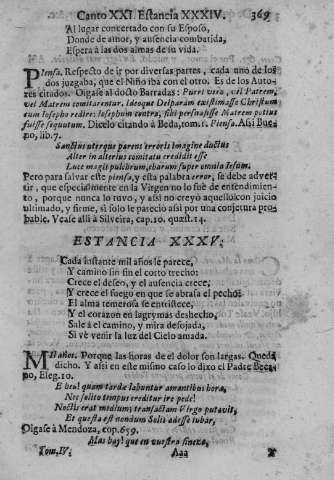 Canto XXI. Estancia XXXIV. 369
Al lugar concertado con su Esposo,
Donde de amor, y ausencia combatida,
Espera à las dos almas de su vida.
Piensa. Respecto de ir por diversas partes, cada uno de los
dos juzgaba, que el Niño iba con el otro. Es de los Auto-
res citados. Oigase al docto Barradas: Pueri vero, vel Patrem,
vel Matrem comitarentur. Ideoque Deiparam existimasse Christum
cum Iosepho redire: Iosephum contra, sibi persuasisse Matrem potius
fuisse sequutum. Dicelo citando à Beda, tom. 1. Piensa. Assi Bue-
no, lib. 7.
Sanctius uterque parens erroris imagine ductus
Alter in alterius comitatu credidit esse
Luce magis pulchrum, charum super omnia Iesum.
Pero para salvar este piensa, y esta palabra error, se debe adver-
tir, que especialmente en la Virgen no lo fuè de entendimien-
to, porque nunca lo tuvo, y assi no creyò aquello con juicio
ultimado, y firme, si solo le pareciò assi por una conjetura pro-
bable. Vease alli à Silveira, cap. 10. quæst. 14.
ESTANCIA XXXV.
Cada instante mil años le parece,
Y camino sin fin el corto trecho:
Crece el deseo, y el ausencia crece,
Y crece el fuego en que se abrasa el pecho:
El alma temerosa se entristece,
Y el corazon en lagrymas deshecho,
Sale à el camino, y mira desojada,
Si vè venir la luz del Cielo amada.
Mil años. Porque las horas de el dolor son largas. Queda
dicho. Y assi en este mismo caso lo dixo el Padre Beca-
no, Eleg. 10.
E heu! quam tarde labuntur amantibus hora,
Nec solito tempus creditur ire pede!
Noctis erat medium; transactam Virgo putavit,
Et questa est nondum Solis adesse jubar,
Oigase à Mendoza, cap. 659.
Mas hay! que en vuestra fineza,
Tom. IV. Aaa Y